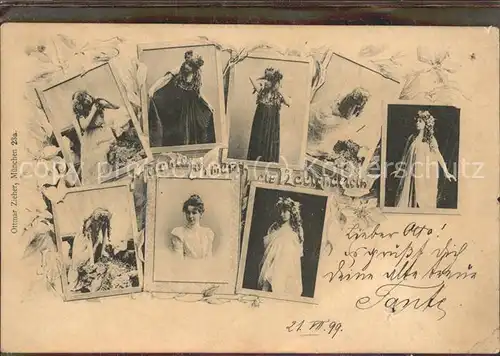 Ottmar Zieher, München 23a.
Lieber Otto!
es grüßt Dich
Deine alte treue
Tante
21. VII. 99.